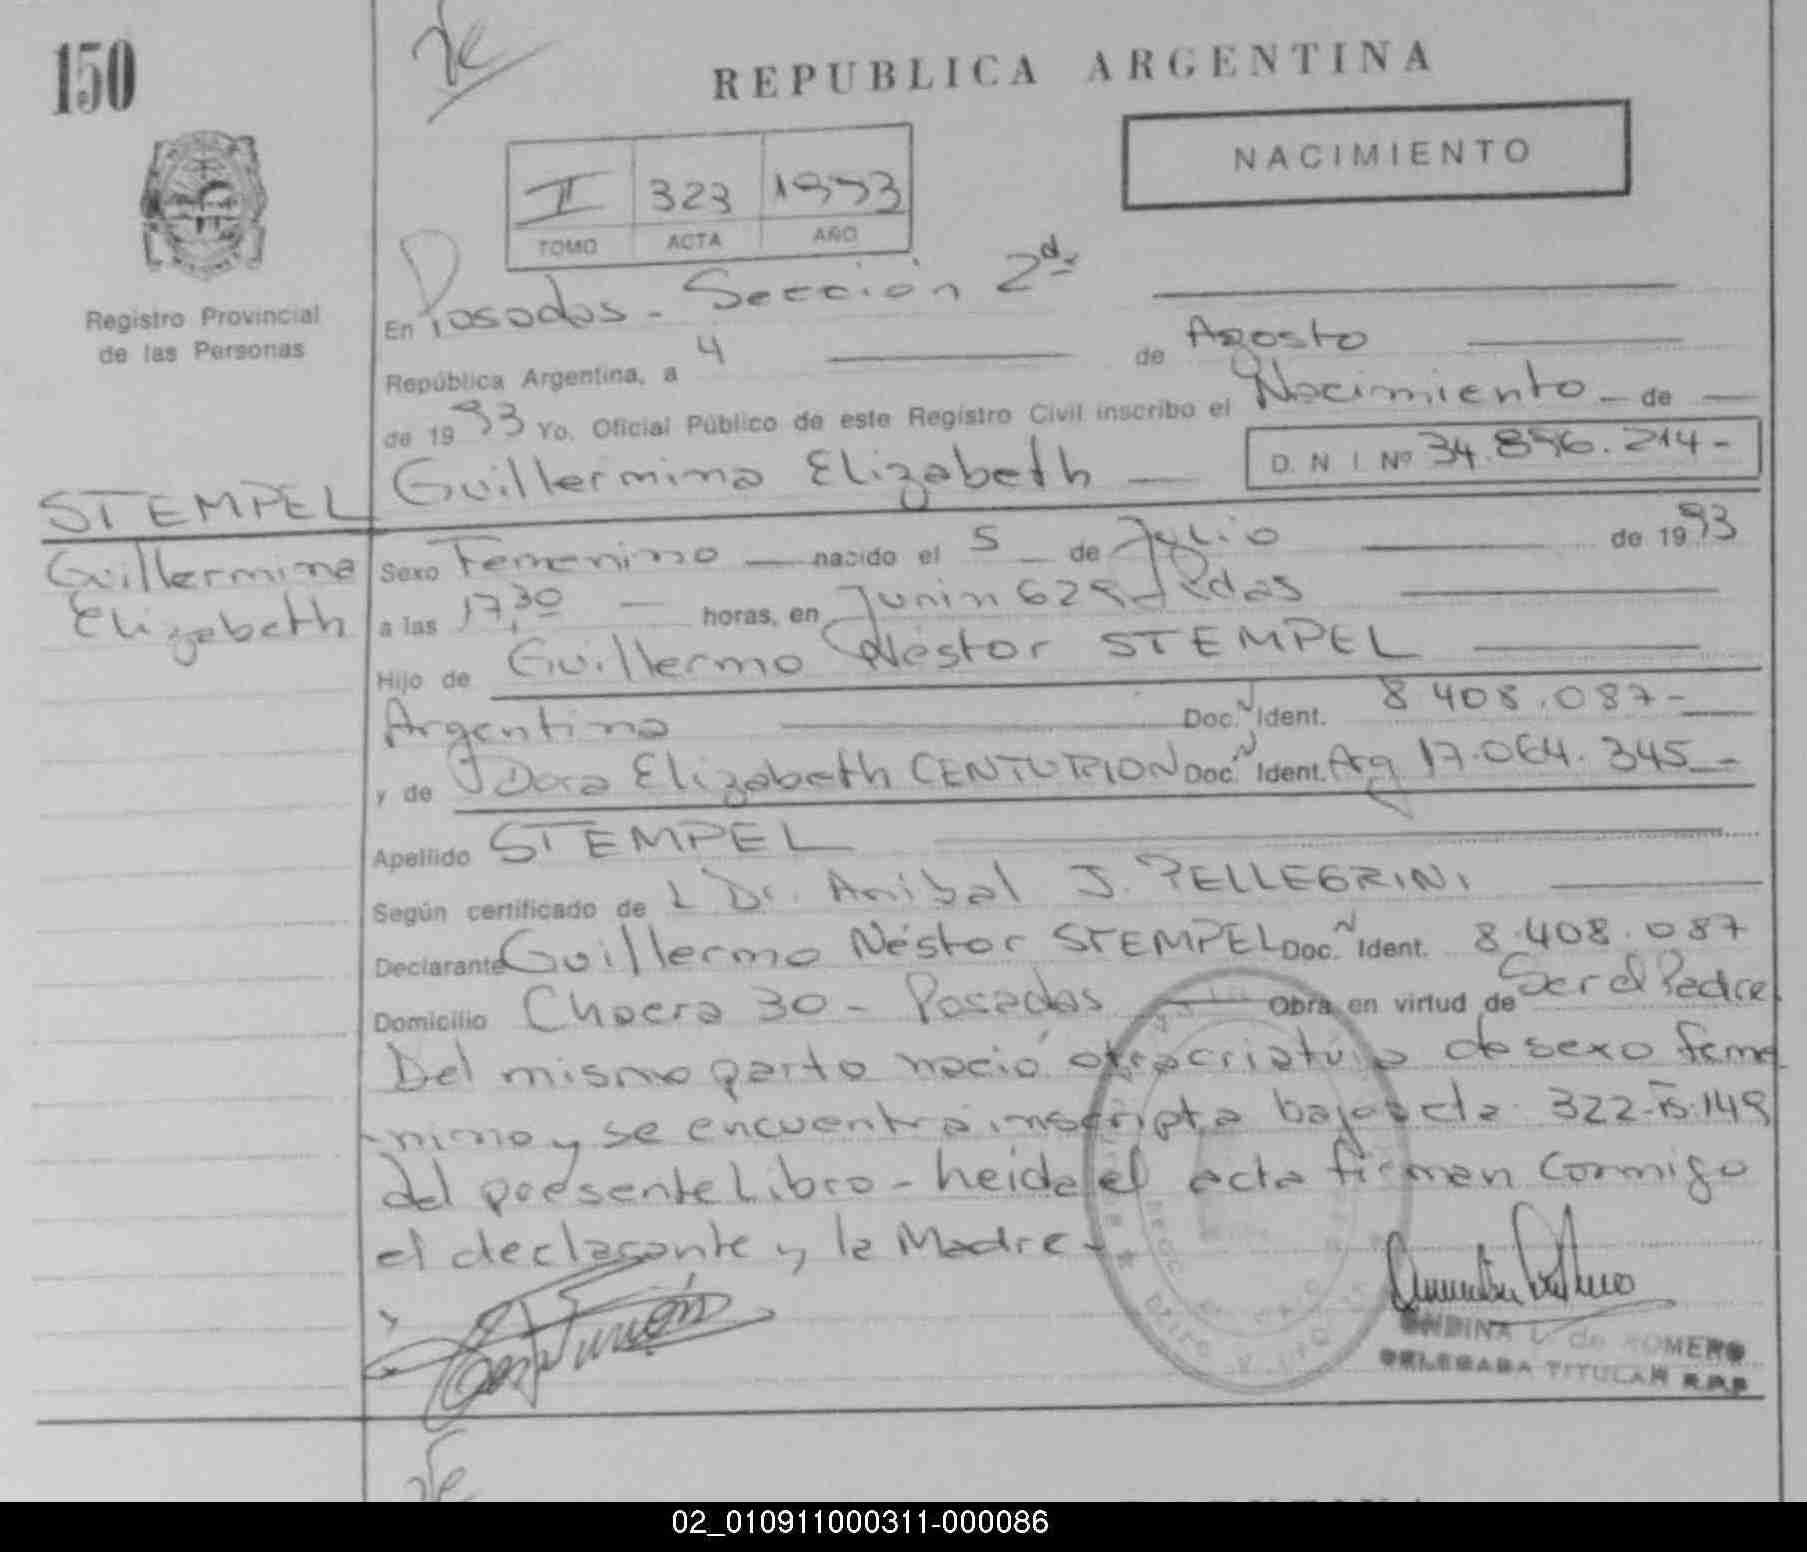 150
REPUBLICA ARGENTINA
NACIMIENTO
II 323 1993
TOMO ACTA AÑO
Registro Provincial
de las Personas
En Posadas - Sección 2da
República Argentina, a 4 de Agosto
de 1993 Yo, Oficial Público de este Registro Civil inscribo el Nacimiento - de
Guillermina Elizabeth D.N.I Nº 34.896.214-
STEMPEL
Guillermina
Elizabeth
Sexo Femenino nacido el 5 de Julio de 1993
a las 17,30 horas, en Junin 629 - Pdas
Hijo de Guillermo Néstor STEMPEL
Argentino Doc. N Ident. 8 408.087-
y de Dora Elizabeth CENTURION Doc. N Ident. Arg 17.064.345-
Apellido STEMPEL
Según certificado de L Dr. Anibal J. PELLEGRINI
Declarante Guillermo Néstor STEMPEL Doc. N Ident. 8.408.087
Domicilio Chacra 30 - Posadas Obra en virtud de Ser el Padre
Del mismo parto nació otra criatura de sexo feme
nino y se encuentra inscripta bajo acta 322-Fº:149
del presente Libro - Leida el acta firman conmigo
el declarante y la Madre -
ONDINA L. de ROMERO
DELEGADA TITULAR R.P.P
02_010911000311-000086